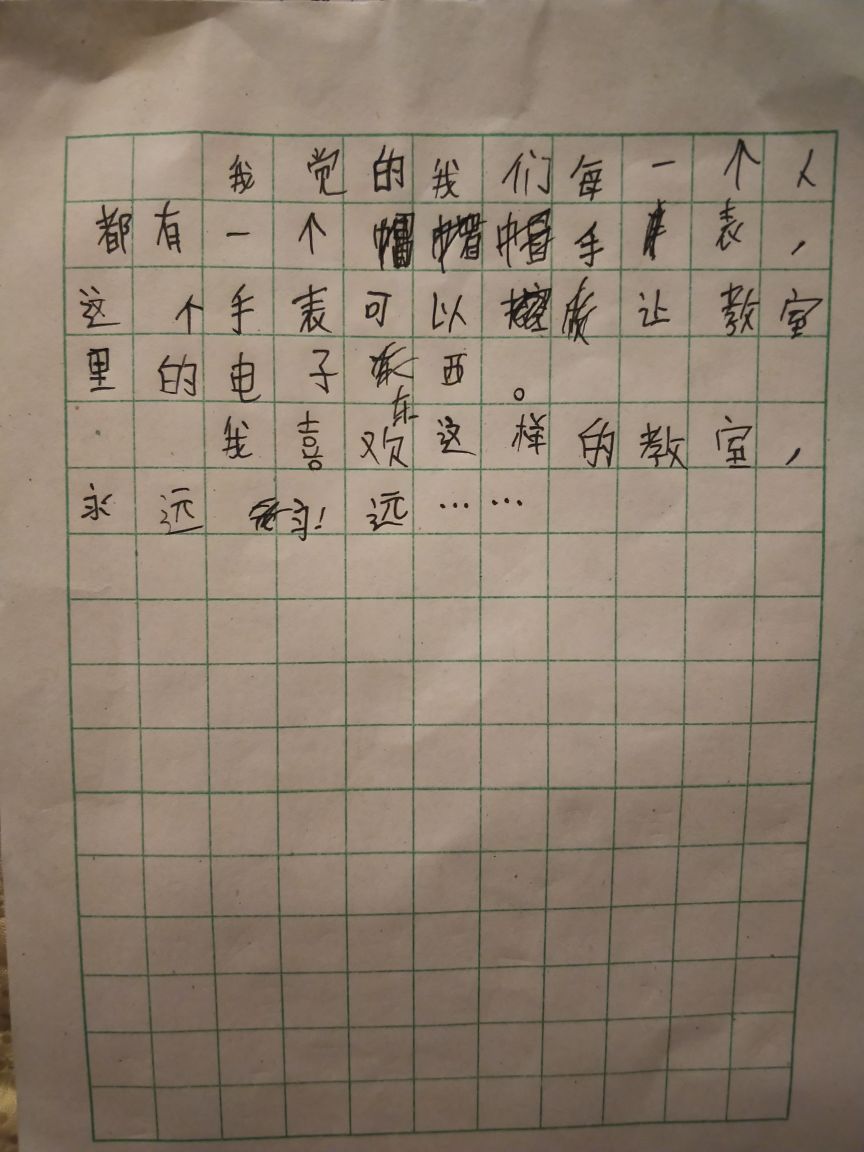 我觉的我们每一个人
都有一个手表，
这个手表可以让教室
里的电子东西。
我喜欢这样的教室，
永远永远……